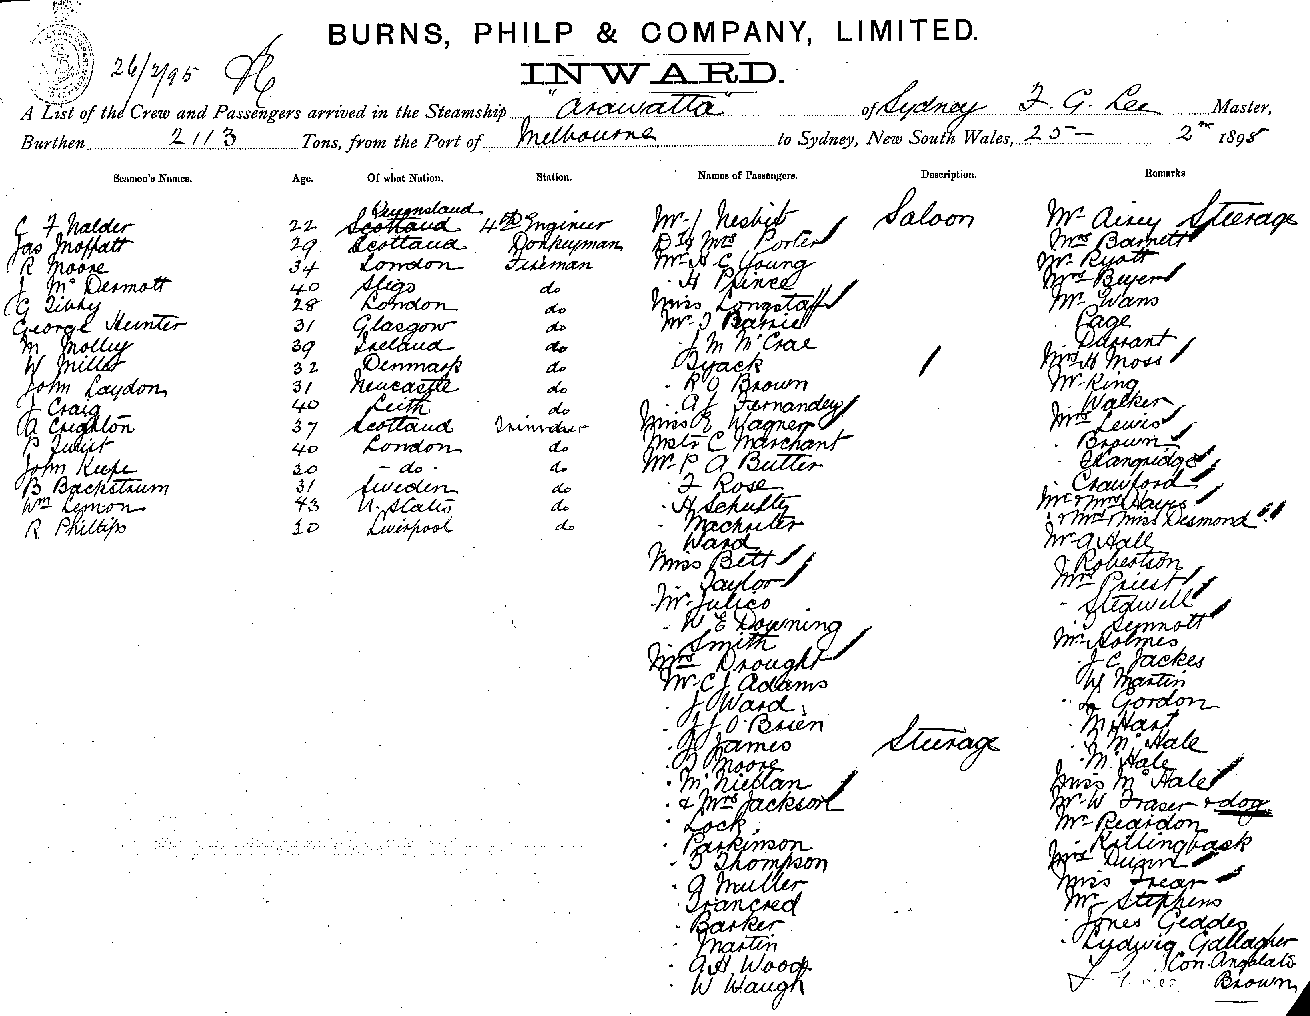 BURNS, PHILP & COMPANY, LIMITED.
INWARD.
26/2/95
A List of the Crew and Passengers arrived in the Steamship "Arawatta" of Sydney F. G. Lee Master,
Burthen 2113 Tons, from the Port of Melbourne to Sydney, New South Wales, 25 2nd 1895
Seamen's Names. Age. Of what Nation. Station. Names of Passengers. Description. Remarks
Queensland
C F Nalder 22 Scotland 4th Engineer
Jas Moffatt 29 Scotland Donkeyman
R Moore 34 London Fireman
J McDermott 40 Sligo do
G Tibby 28 London do
George Hunter 31 Glasgow do
M Molley 39 Ireland do
W Miller 32 Denmark do
John Laydon 31 Newcastle do
J Craig 40 Leith do
A Creighton 37 Scotland Trimmer
P Juliet 40 London do
John Keefe 30 - do - do
B Backstrum 31 Sweden do
Wm Lemon 43 U. States do
R Phillips 20 Liverpool do
Mr J Nesbit Saloon
Dr & Mrs Porter
Mr H C Young
H Prince
Miss Longstaff
Mr J Barrie
J M McCrae
Byack
R O Brown
A J Fernandey
Miss E Wagner
Mstr C Marchant
Mr P A Butter
F Rose
H Schulty
Ward
Miss Bett
Taylor
Mr Julico
W E Downing
Smith
Mrs Drought
Mr C J Adams
J Ward
J J O'Brien
J James Steerage
D Moore
McLellan
& Mrs Jackson
Lock
Parkinson
T Thompson
A Muller
Trancred
Barker
Martin
A H Wood
W Waugh
Mr Airey Steerage
Mrs Barnett
Mr Ryott
Mrs Beyer
Mr Wans
Page
Durrant
Mrs H Moss
Mr King
Walker
Mrs Lewis
Brown
Langridge
Crawford
Mr & Mrs Hayes
& Mrs & Miss Desmond
Mr A Hall
J Robertson
Mrs Priest
Stedwell
Sennott
Mr Holmes
J C Jackes
W Martin
L Gordon
M Hart
J McHale
McHale
Miss McHale
Mr W Fraser & dog
Mr Reardon
Rollingback
Mrs Dunn
Miss Frear
Mr Stephens
Jones Geddes
Ludwig Gallagher
Con Angolato
Brown